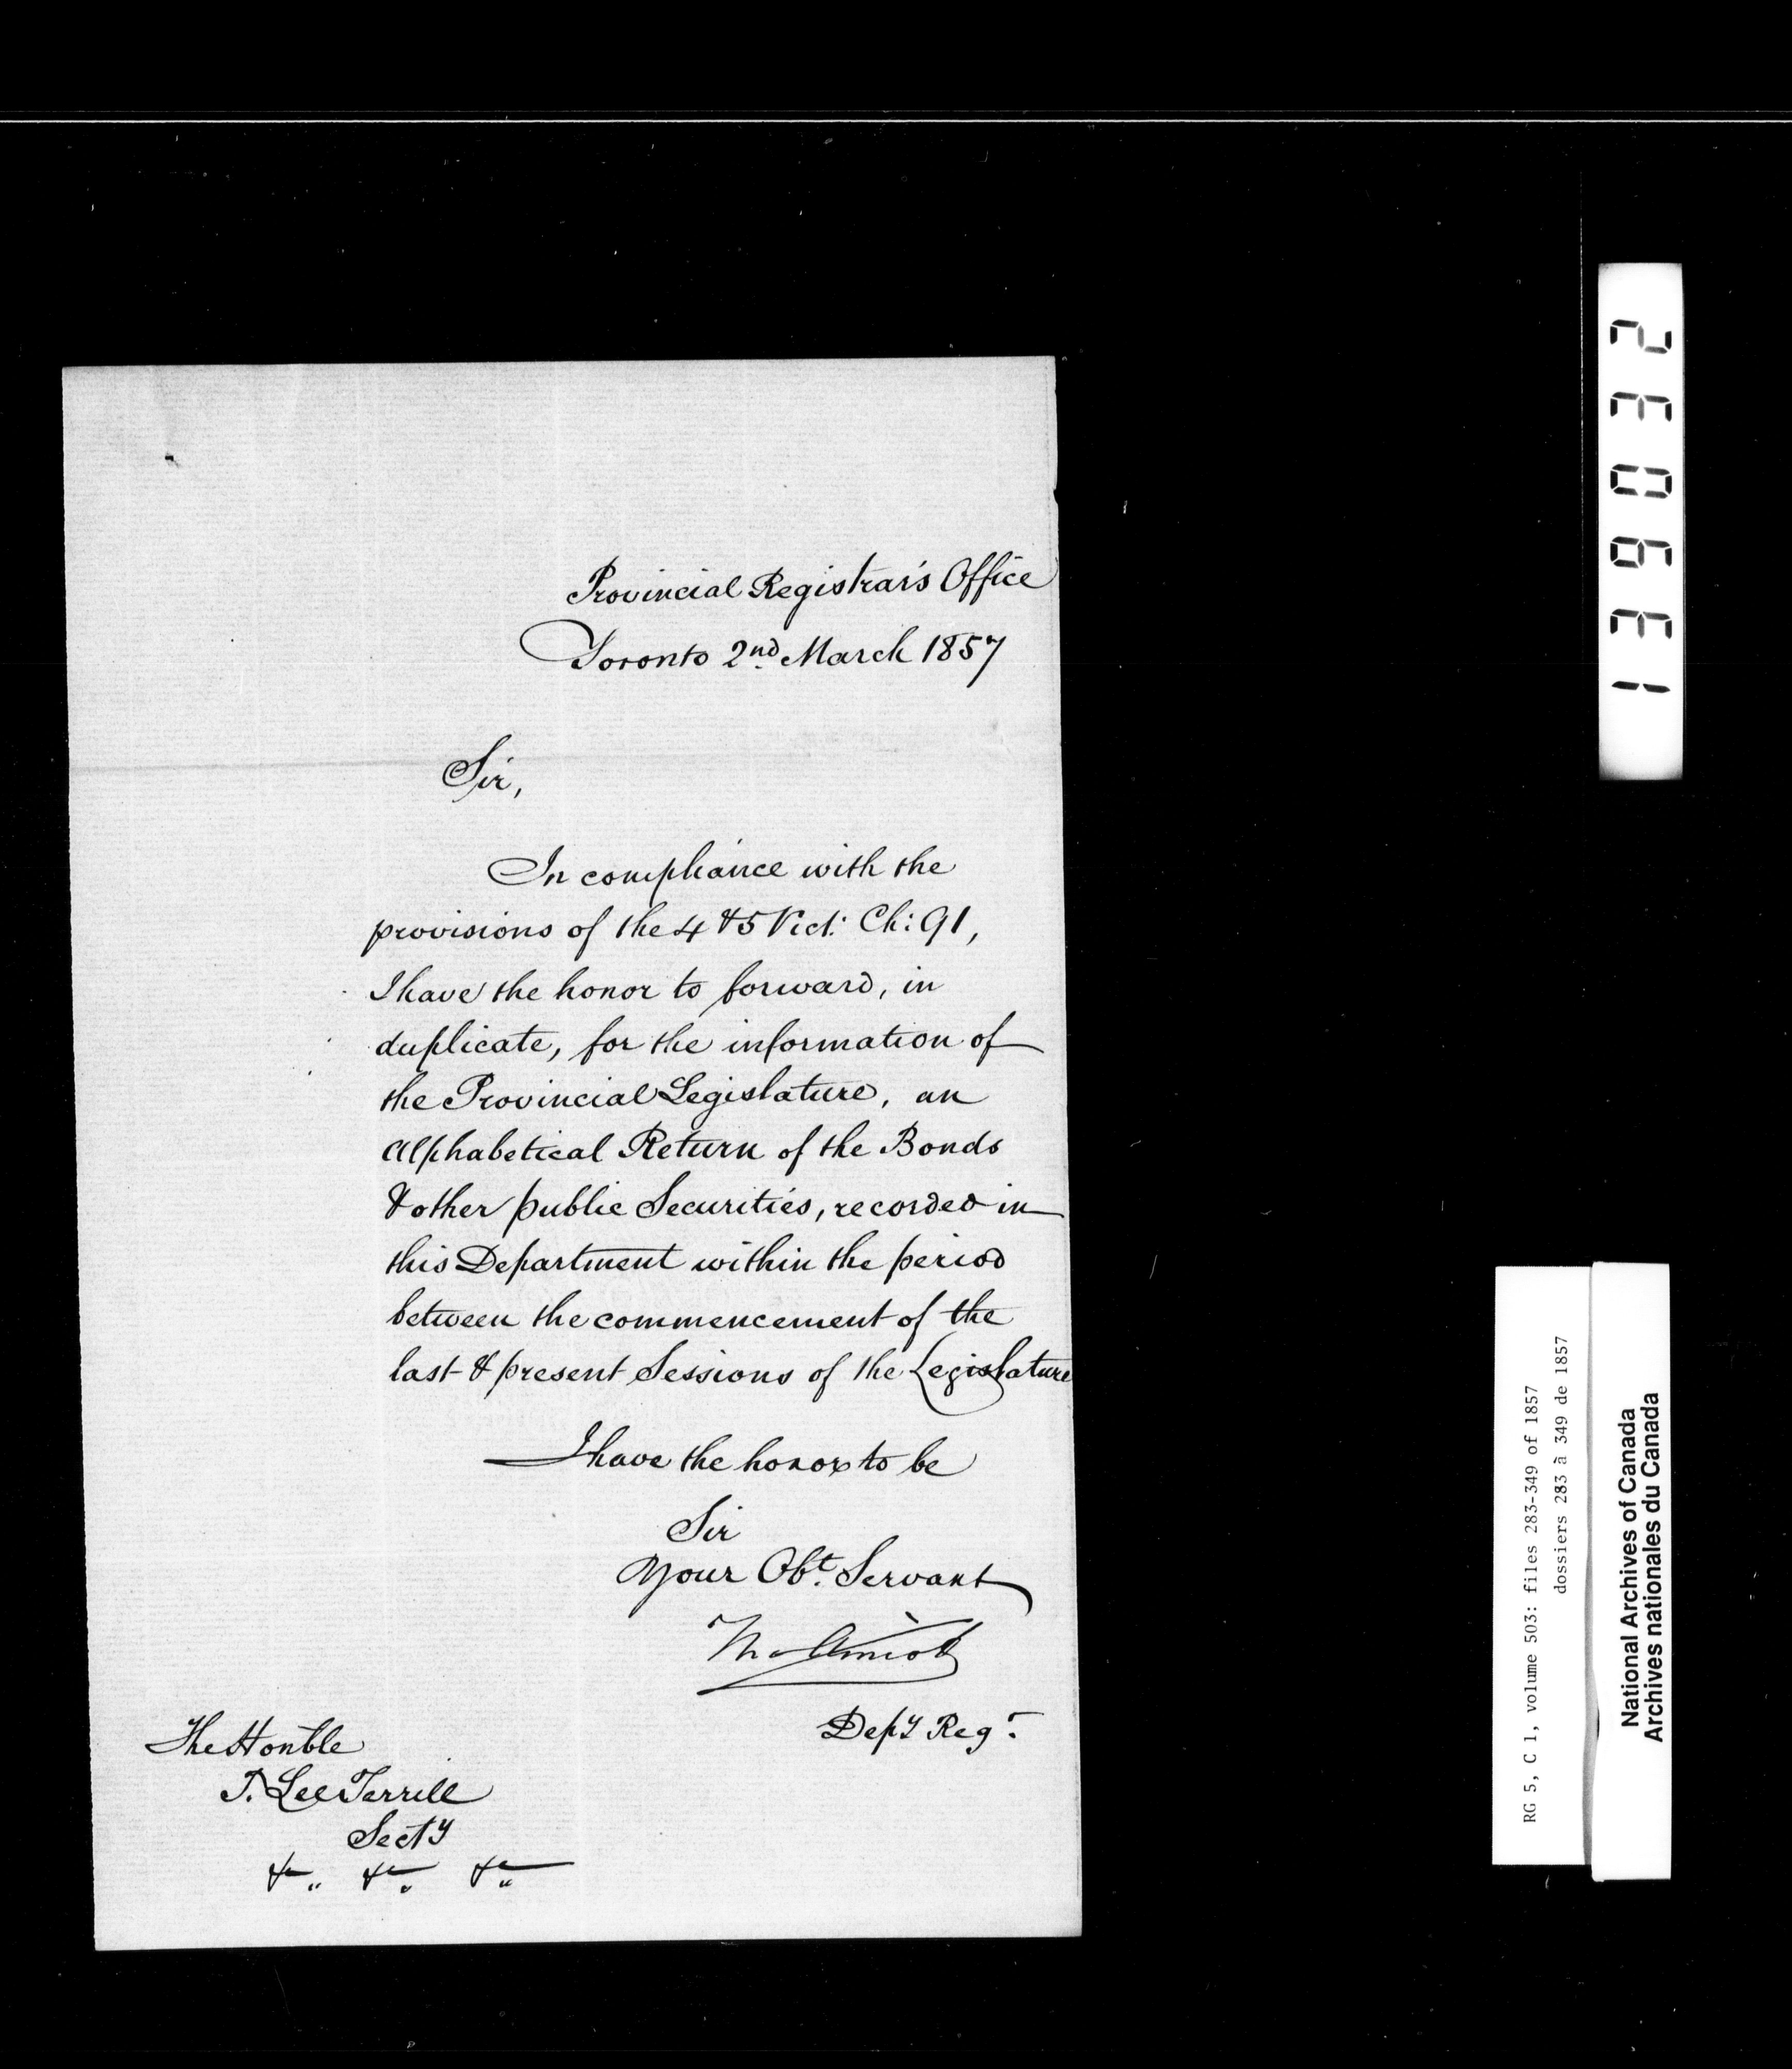 Provincial Registrar's Office
Toronto 2nd March 1857
Sir,
In compliance with the
provisions of the 4 & 5 Vict: Ch: 91,
I have the honor to forward, in
duplicate, for the information of
the Provincial Legislature, an
Alphabetical Return of the Bonds
& other public Securities, recorded in
this Department within the period
between the commencement of the
last & present Sessions of the Legislature
I have the honor to be
Sir
Your Obt. Servant
Th. Amiot
Depy Regr.
The Honble
T. Lee Terrill
Secty
&c. &c. &c.
139032
RG 5, C 1, volume 503: files 283-349 of 1857
dossiers 283 à 349 de 1857
National Archives of Canada
Archives nationales du Canada